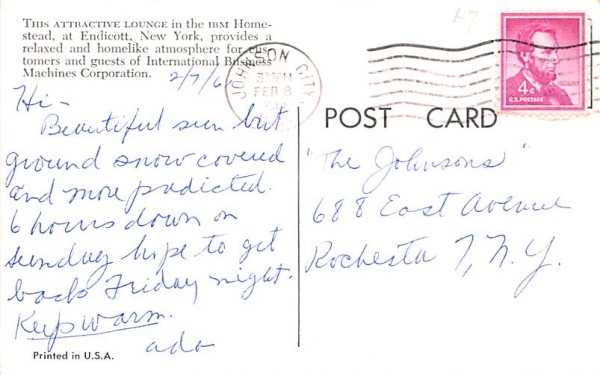 THIS ATTRACTIVE LOUNGE in the IBM Home-
stead, at Endicott, New York, provides a
relaxed and homelike atmosphere for cus-
tomers and guests of International Business
Machines Corporation.
2/7/6
JOHNSON CITY
PM
FEB 8
4¢
U.S. POSTAGE
Hi-
Beautiful sun but
ground snow covered
and more predicted.
6 hours down on
Sunday hope to get
back Friday night.
Keep warm.
ado
POST CARD
"The Johnsons"
688 East Avenue
Rochester 7, N.Y.
Printed in U.S.A.